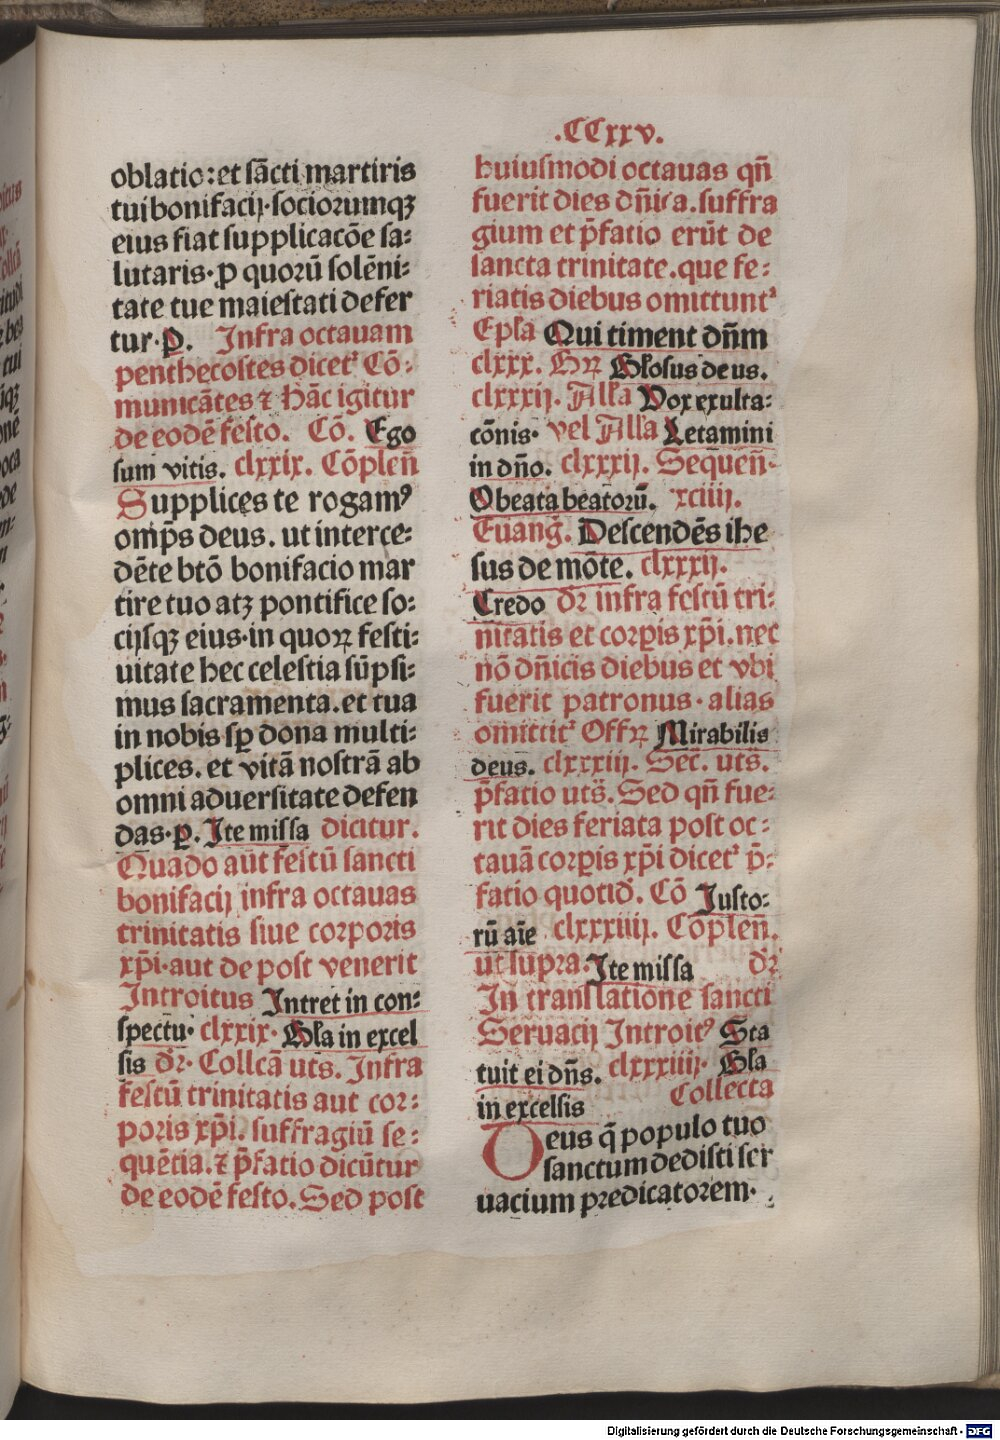 .CCxxv.
oblatio: et sācti martiris
tui bonifacij. sociorumqꝫ
eius fiat supplicacōe sa:
lutaris. ꝑ quorū solēni:
tate tue maiestati defer
tur. ꝑ. Infra octauam
penthecostes dicetᷣ Cō:
municātes ⁊ Hāc igitur
de eodē festo. Cō. Ego
sum vitis. clxxix. Cōpleñ
Supplices te rogamꝰ
omp̄s deus. ut interce:
dēte btō bonifacio mar
tire tuo atqꝫ pontifice so:
cijsqꝫ eius. in quoꝝ festi:
uitate hec celestia sūpsi:
mus sacramenta. et tua
in nobis sꝑ dona multi:
plices. et vitā nostrā ab
omni aduersitate defen
das. ꝑ. Ite missa dicitur.
Quādo aūt festū sancti
bonifacij infra octauas
trinitatis siue corporis
xp̄i. aut de post venerit
Introitus Intret in con:
spectu. clxxix. Gła in excel
sis dꝛ. Collcā uts̄. Infra
festū trinitatis aut cor:
poris xp̄i. suffragiū se:
quētia. ⁊ p̄fatio dicūtur
de eodē festo. Sed post
huiusmodi octauas qñ
fuerit dies dñica. suffra
gium et p̄fatio erūt de
sancta trinitate. que fe:
riatis diebus omittuntᷣ
Ep̄la Qui timent dñm
clxxx. Gꝝ Głosus deus.
clxxxij. Ałła Vox exulta:
cōnis. vel Ałła Letamini
in dño. clxxxij. Sequeñ.
O beata beatorū. xciiij.
Euang̃. Descendēs ihe
sus de mōte. clxxxij.
Credo dꝛ infra festū tri:
nitatis et corꝑis xp̄i. nec
nō dñicis diebus et vbi
fuerit patronus. alias
omittitᷣ Offꝝ Mirabilis
deus. clxxxiij. Sec̄. uts̄.
p̄fatio uts̄. Sed qñ fue:
rit dies feriata post oc:
tauā corꝑis xp̄i dicetᷣ p̄:
fatio quotid̄. Cō Iusto:
rū aīe clxxxiiij. Cōpleñ.
ut supra. Ite missa dꝛ
In translatione sancti
Seruacij Introitꝰ Sta
tuit ei dñs. clxxxiiij. Gła
in excelsis Collecta
Deus q̄ populo tuo
sanctum dedisti ser
uacium predicatorem.
Digitalisierung gefördert durch die Deutsche Forschungsgemeinschaft - DFG